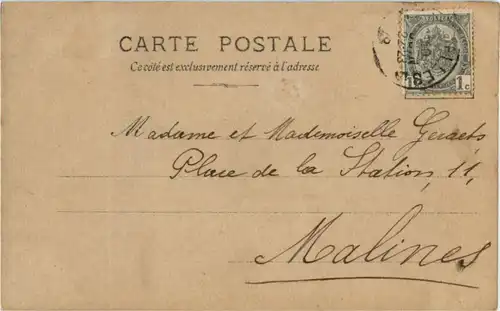 CARTE POSTALE
Ce côté est exclusivement réservé à l'adresse
1 1c
Madame et Mademoiselle Geraets
Place de la Station, 11,
Malines